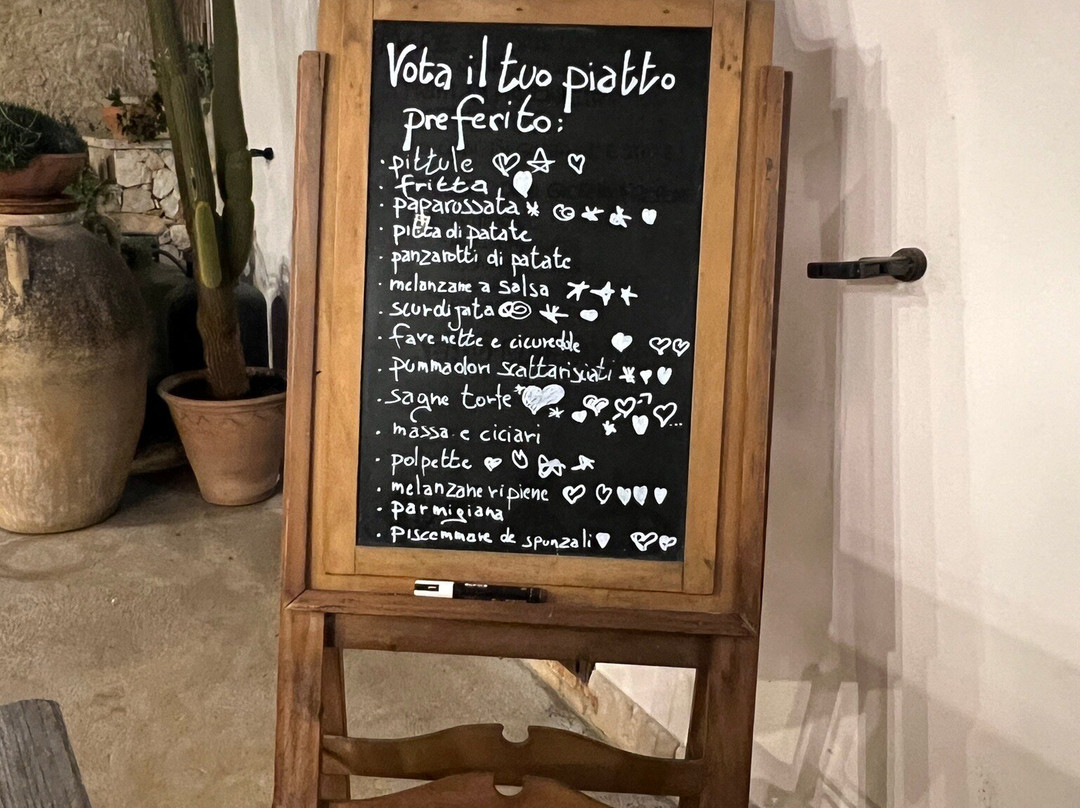 Vota il tuo piatto
preferito:
· pittule
· fritta
· paparossata
· pitta di patate
· panzarotti di patate
· melanzane a salsa
· scurdijata
· fave nette e cicuredde
· pummadori scattarisciati
· sagne torte
· massa e ciciari
· polpette
· melanzane ripiene
· parmigiana
· piscemmare de spunzali